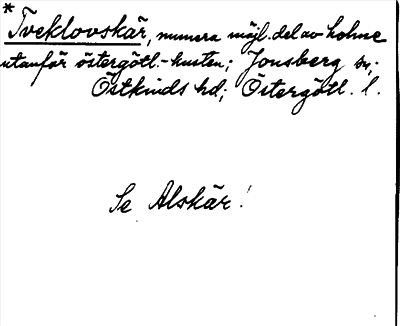 * Tveklovskär, numera möjl. del av holme
utanför östergötl.-kusten; Jonsberg sn;
Östkinds hd; Östergötl. l.
Se Alskär!